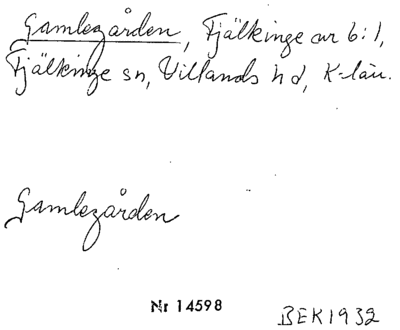 Gamlegården, Fjälkinge nr 6:1,
Fjälkinge sn, Villands hd, K-län.
Gamlegården
Nr 14598
BEK1932